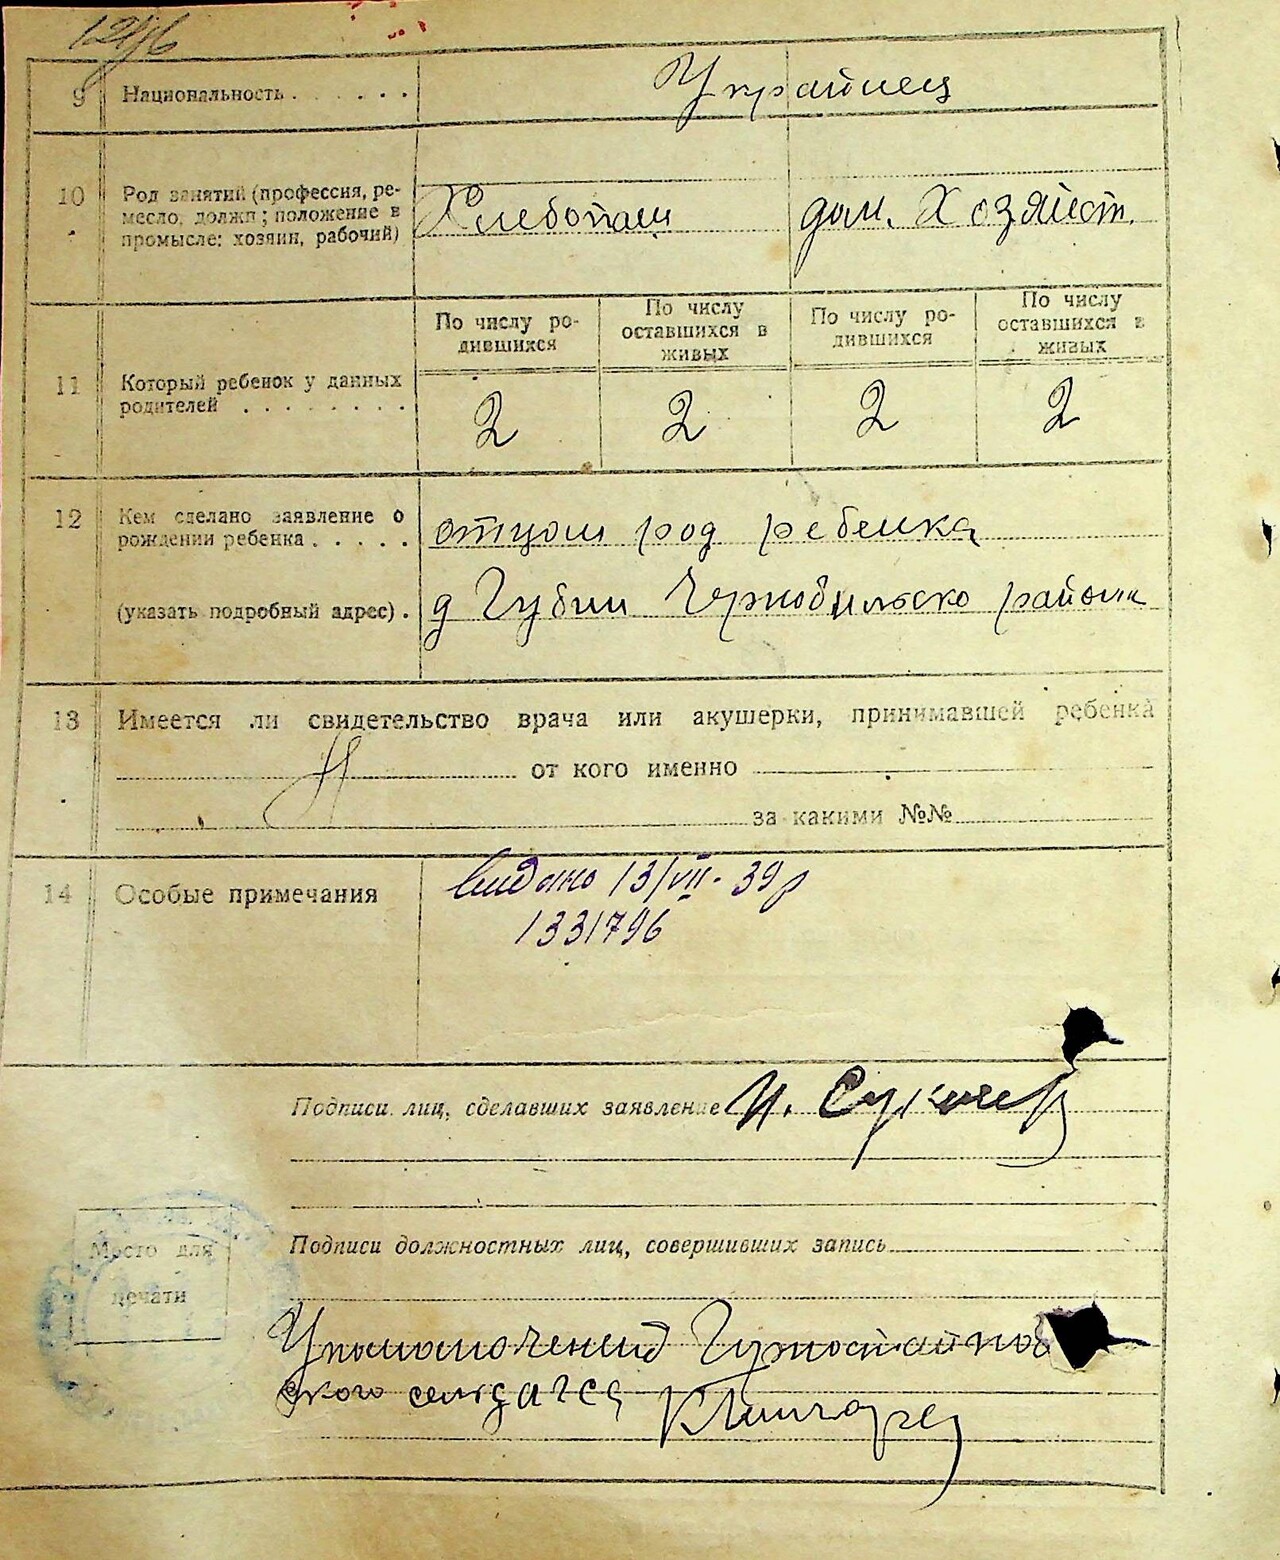 9 Национальность . . . . . . Украинец
10 Род занятий (профессия, ре-
месло, должн; положение в
промысле: хозяин, рабочий)
Хлебопаш
дом. Хозяйст.
По числу ро-
дившихся
По числу
оставшихся в
живых
По числу ро-
дившихся
По числу
оставшихся в
живых
11 Который ребенок у данных
родителей . . . . . . . .
2 2 2 2
12 Кем сделано заявление о
рождении ребенка . . . . .
отцом род ребенка
(указать подробный адрес) .
д Губин Чернобильско района
13 Имеется ли свидетельство врача или акушерки, принимавшей ребенка
от кого именно
за какими №№
14 Особые примечания
видано 13/VII - 39 р
1331796
Подписи лиц, сделавших заявление И.
Подписи должностных лиц, совершивших запись
Место для
печати
ского